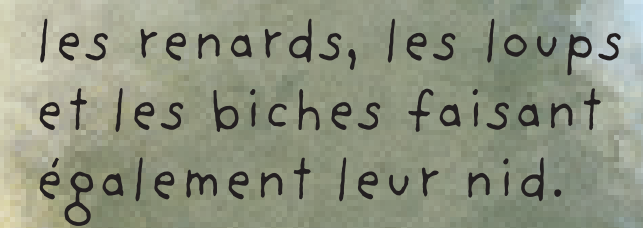 les renards, les loups
et les biches faisant
également leur nid.